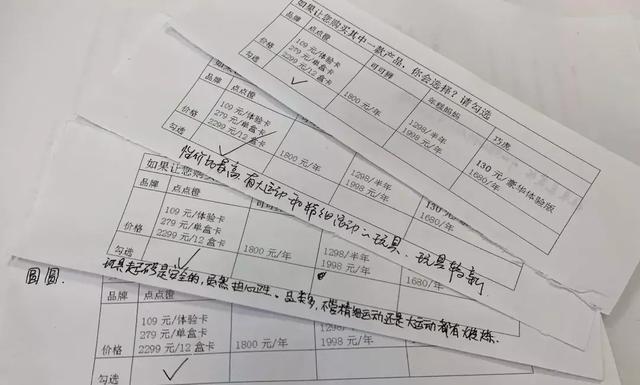 如果让您购买其中一款产品,你会选择?请勾选
品牌 点点橙 可可狮 年糕妈妈 巧虎
价格 109 元/体验卡
279 元/单盒卡
2299 元/12 盒卡
1800 元/年
1298/半年
1998 元/年
130 元/豪华体验版
1680/年
勾选 ✓
如果让您
品牌 点点橙
价格 109 元/体验卡
279 元/单盒卡
2299 元/12 盒卡
1800 元/年
1298/半年
1998 元/年
130 元/豪华体验版
1680/年
勾选 ✓
性价比最高,有大运动和精细运动的玩具、玩具较新
如果让您购买
品牌 点点橙
价格 109 元/体验卡
279 元/单盒卡
2299 元/12 盒卡
1800 元/年
1298/半年
1998 元/年
1680/年
勾选 ✓
玩具起码是安全的,
品类多,不管精细运动还是大运动都有锻炼.
圆圆.
品牌 点点橙
价格 109 元/体验卡
279 元/单盒卡
2299 元/12 盒卡
1800 元/年
1298/半年
1998 元/年
1680/年
勾选 ✓